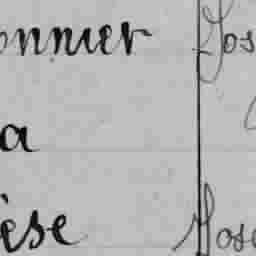 onnier Jos
a
èse Jose